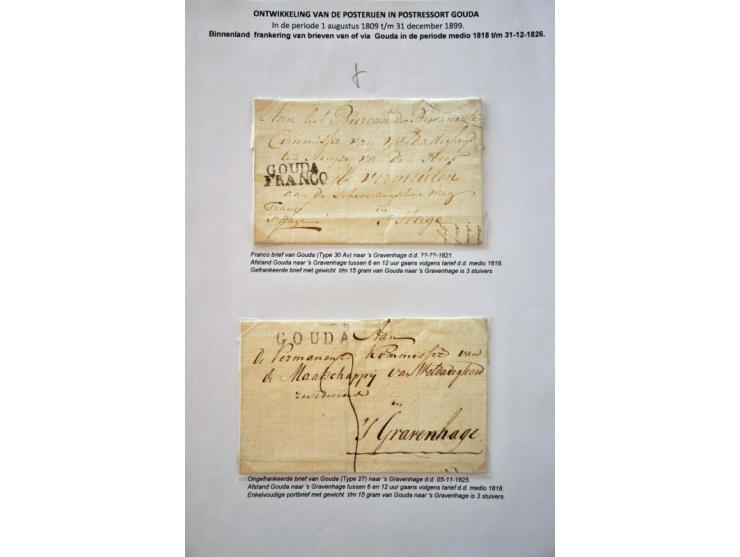 ONTWIKKELING VAN DE POSTERIJEN IN POSTRESSORT GOUDA
In de periode 1 augustus 1809 t/m 31 december 1899.
Binnenland frankering van brieven van of via Gouda in de periode medio 1818 t/m 31-12-1826.
Aan het Bureau der Permanente
Commissie van weldadigheid
ten huize van den Heer
GOUDA
FRANCO
Vermeulen
aan de
Franco
in
s'Hage
's Hage
Franco brief van Gouda (Type 30 Av) naar 's Gravenhage d.d. ??-??-1821.
Afstand Gouda naar 's Gravenhage tussen 6 en 12 uur gaans volgens tarief d.d. medio 1818.
Gefrankeerde brief met gewicht t/m 15 gram van Gouda naar 's Gravenhage is 3 stuivers
GOUDA
Aan
de Permanente Kommissie van
de Maatschappij van Weldadigheid
in
's Gravenhage
Ongefrankeerde brief van Gouda (Type 27) naar 's Gravenhage d.d. 05-11-1825.
Afstand Gouda naar 's Gravenhage tussen 6 en 12 uur gaans volgens tarief d.d. medio 1818.
Enkelvoudige portbrief met gewicht t/m 15 gram van Gouda naar 's Gravenhage is 3 stuivers.